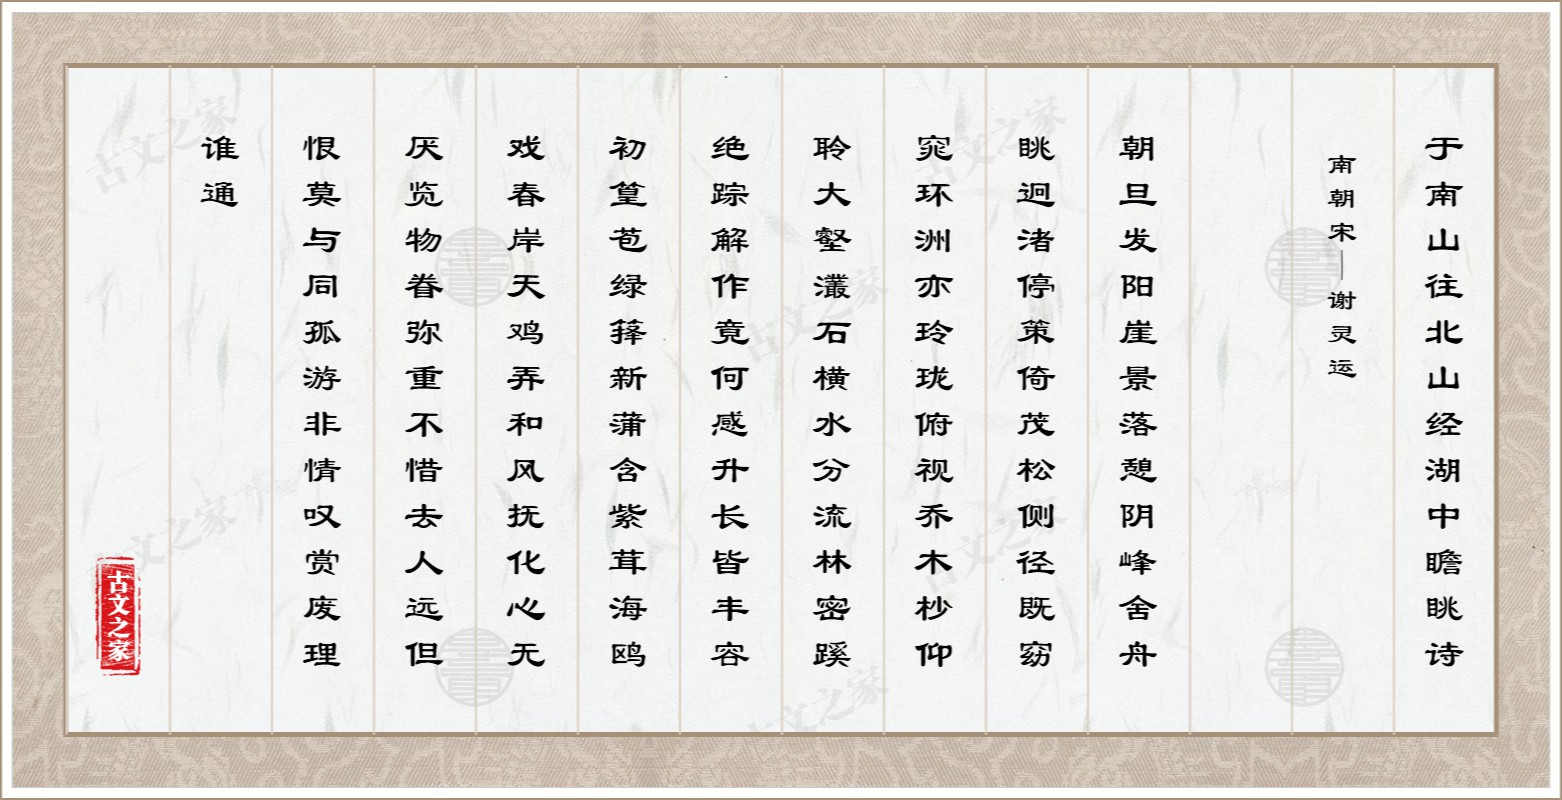 于南山往北山经湖中瞻眺诗
南朝宋｜谢灵运
朝旦发阳崖景落憩阴峰舍舟
眺迥渚停策倚茂松侧径既窈
窕环洲亦玲珑俯视乔木杪仰
聆大壑灇石横水分流林密蹊
绝踪解作竟何感升长皆丰容
初篁苞绿箨新蒲含紫茸海鸥
戏春岸天鸡弄和风抚化心无
厌览物眷弥重不惜去人远但
恨莫与同孤游非情叹赏废理
谁通
古文之家